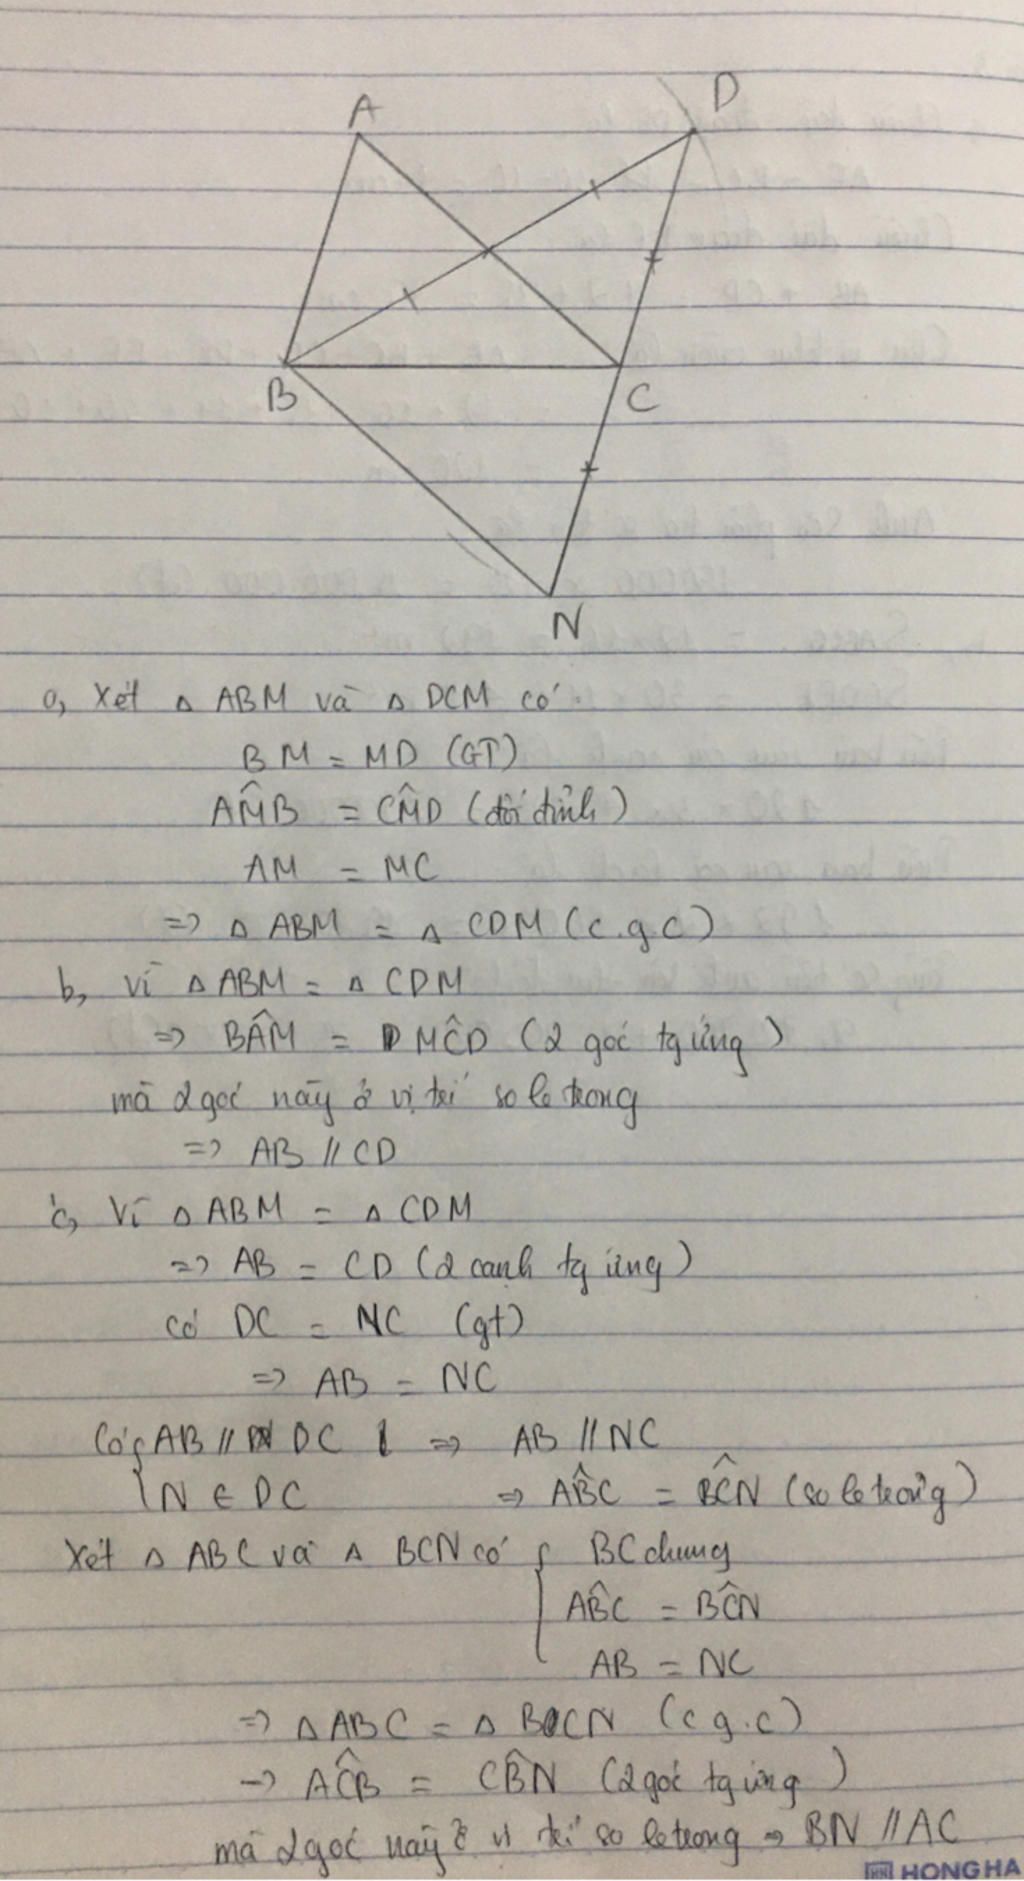 A
D
B
C
N
a, Xét △ ABM và △ DCM có
BM = MD (GT)
AM̂B = CM̂D (đối đỉnh)
AM = MC
=> △ ABM = △ CDM (c.g.c)
b, Vì △ ABM = △ CDM
=> BÂM = MĈD (2 góc tg ứng)
mà 2 góc này ở vị trí so le trong
=> AB // CD
c, Vì △ ABM = △ CDM
=> AB = CD (2 cạnh tg ứng)
có DC = NC (gt)
=> AB = NC
Có { AB // DC => AB // NC
N ∈ DC => AB̂C = BĈN (so le trong)
Xét △ ABC và △ BCN có { BC chung
AB̂C = BĈN
AB = NC
=> △ ABC = △ BCN (c.g.c)
-> AĈB = CB̂N (2 góc tg ứng)
mà 2 góc này ở vị trí so le trong => BN // AC
HH HONG HA